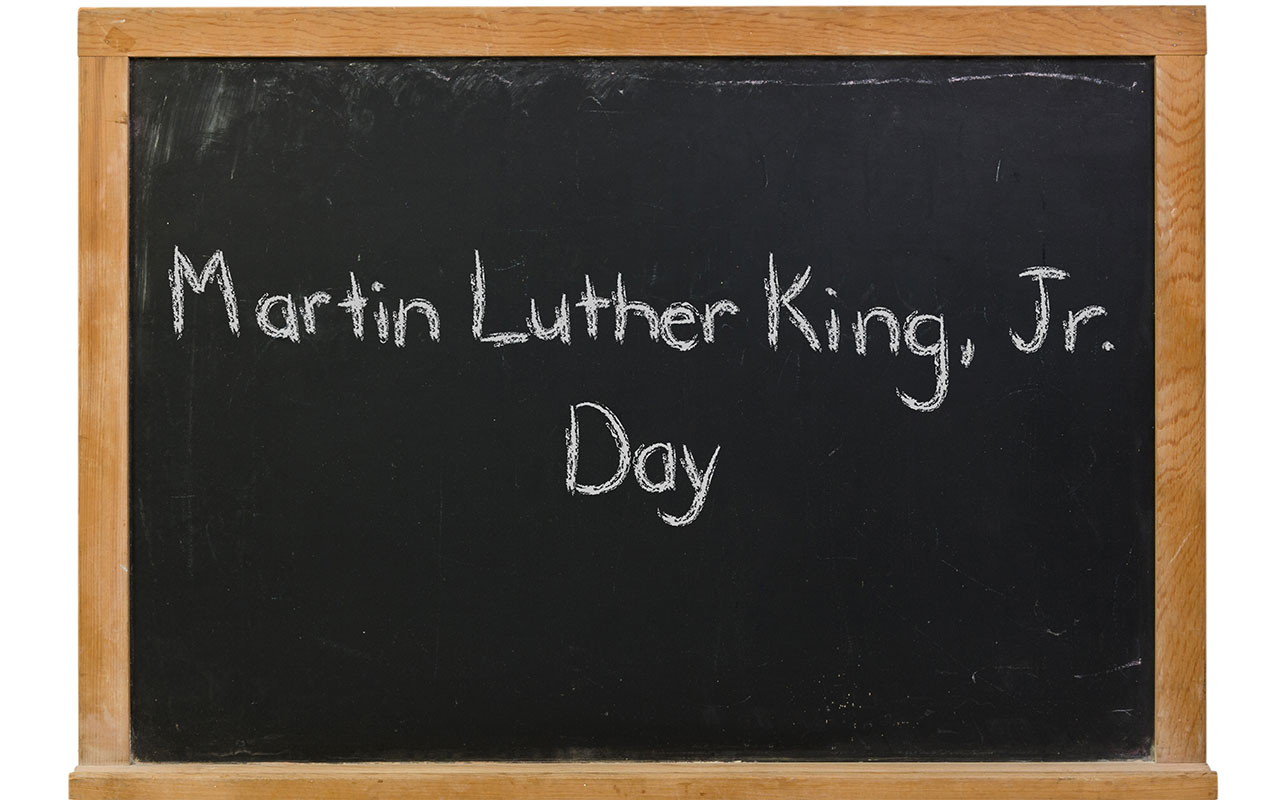 Martin Luther King, Jr.
Day